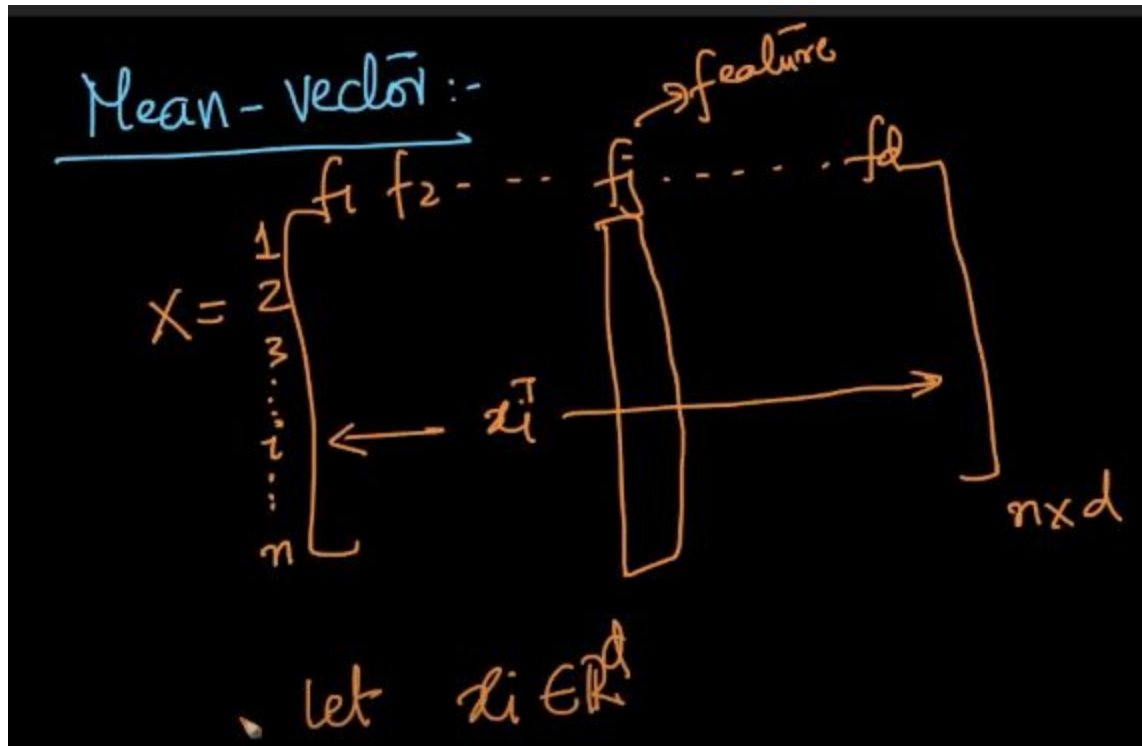 Mean-vector:-
→ feature
f1 f2 - - -- fj . . - - - . fd
1
X = 2
3
i
← xiᵀ →
n
n x d
let xi ∈ ℝᵈ